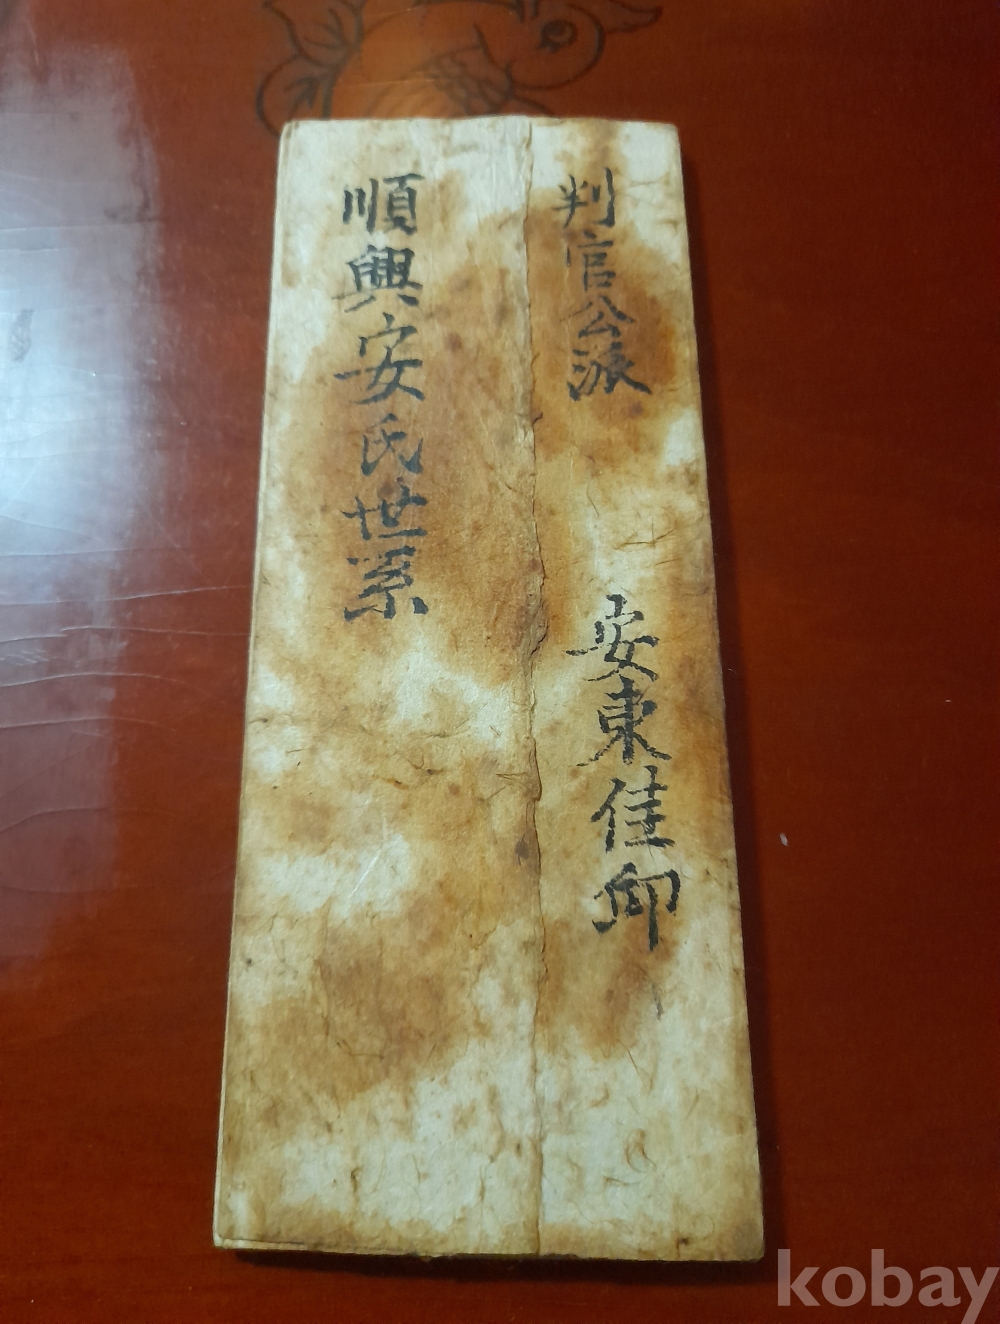 判官公派
安東佳邱
順興安氏世系
kobay